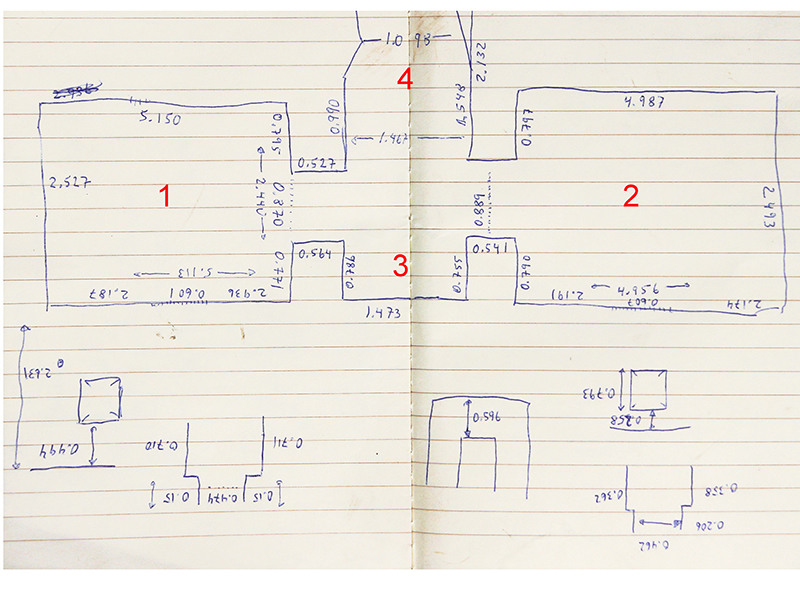 1.098
4
2.132
5.150
0.795
0.690
4.987
0.797
2.527
1
0.527
2.440
0.870
0.889
2
2.493
3
0.771
0.786
0.755
0.541
0.790
5.113
2.187
0.601
2.936
1.473
2.191
0.607
2.174
2.631
0.494
0.710
0.711
0.15
0.474
0.15
0.596
0.793
0.358
0.362
0.358
0.206
0.462